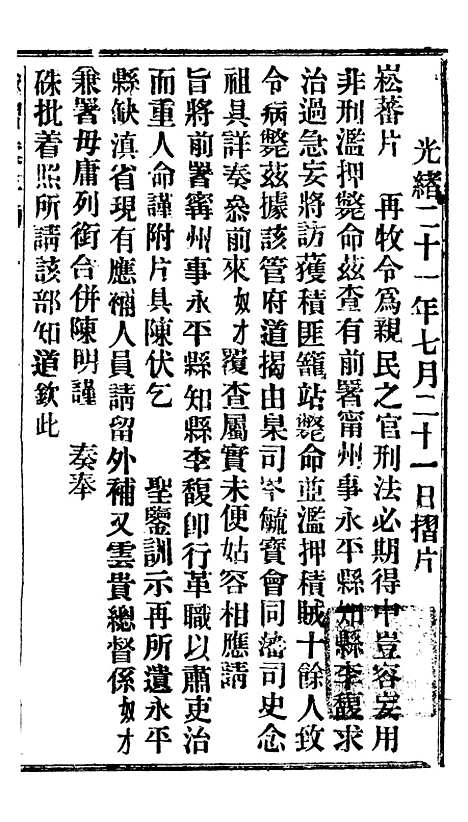 光緒二十一年七月二十一日摺片
崧蕃片　再牧令爲親民之官刑法必期得中豈容妄用
非刑濫押斃命茲查有前署甯州事永平縣知縣李馥求
治過急妄將訪獲積匪籠站斃命並濫押積賊十餘人致
令病斃茲據該管府道揭由臬司岑毓寶會同藩司史念
祖具詳奏叅前來奴才覆查屬實未便姑容相應請
旨將前署甯州事永平縣知縣李馥卽行革職以肅吏治
而重人命謹附片具陳伏乞　聖鑒訓示再所遺永平
縣缺滇省現有應補人員請留外補又雲貴總督係奴才
兼署毋庸列銜合併陳明謹　奏奉
硃批着照所請該部知道欽此